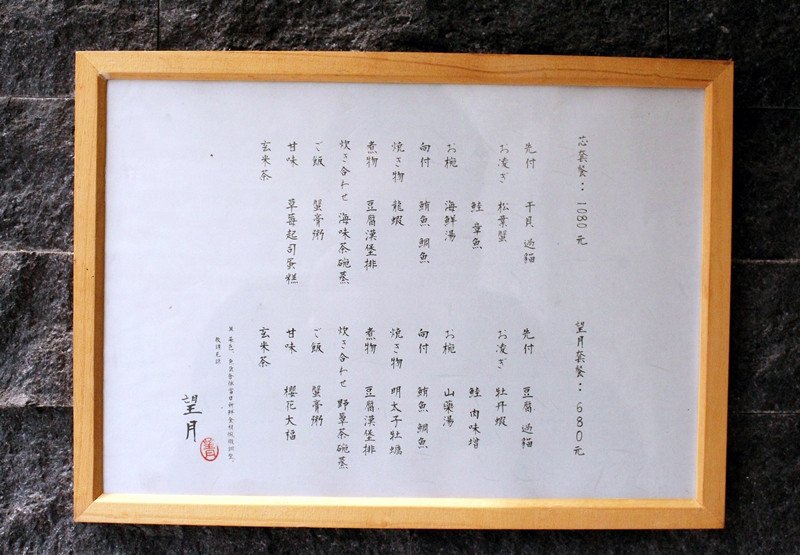 芯套餐：1080元
先付 干貝 酒貓
お凌ぎ 松葉蟹
鮭 章魚
お椀 海鮮湯
向付 鮪魚 鯛魚
焼き物 龍蝦
煮物 豆腐漢堡排
炊き合わせ 海味茶碗蒸
ご飯 蟹膏粥
甘味 草莓起司蛋糕
玄米茶
望月套餐：680元
先付 豆腐 酒貓
お凌ぎ 牡丹蝦
鮭 肉味噌
お椀 山藥湯
向付 鮪魚 鯛魚
焼き物 明太子牡蠣
煮物 豆腐漢堡排
炊き合わせ 野蕈茶碗蒸
ご飯 蟹膏粥
甘味 櫻花大福
玄米茶
菜色、魚貨會依當日新鮮食材微微調整。
敬請見諒
望月